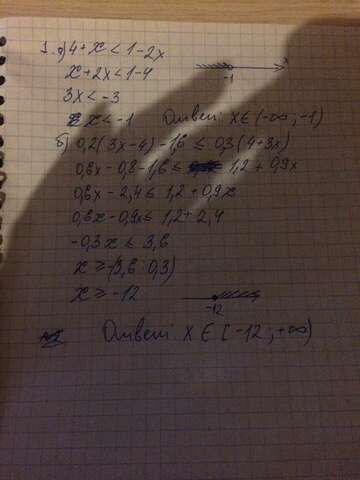 1. а) 4+x < 1-2x
x+2x < 1-4
3x < -3
-1 x
x < -1 Ответ: x∈(-∞; -1)
б) 0,2(3x-4)-1,6 ≤ 0,3(4+3x)
0,6x - 0,8 - 1,6 ≤ 1,2 + 0,9x
0,6x - 2,4 ≤ 1,2 + 0,9x
0,6x - 0,9x ≤ 1,2 + 2,4
-0,3x ≤ 3,6
x ≥ -(3,6 : 0,3)
x ≥ -12
-12
Ответ: x ∈ [-12; +∞)